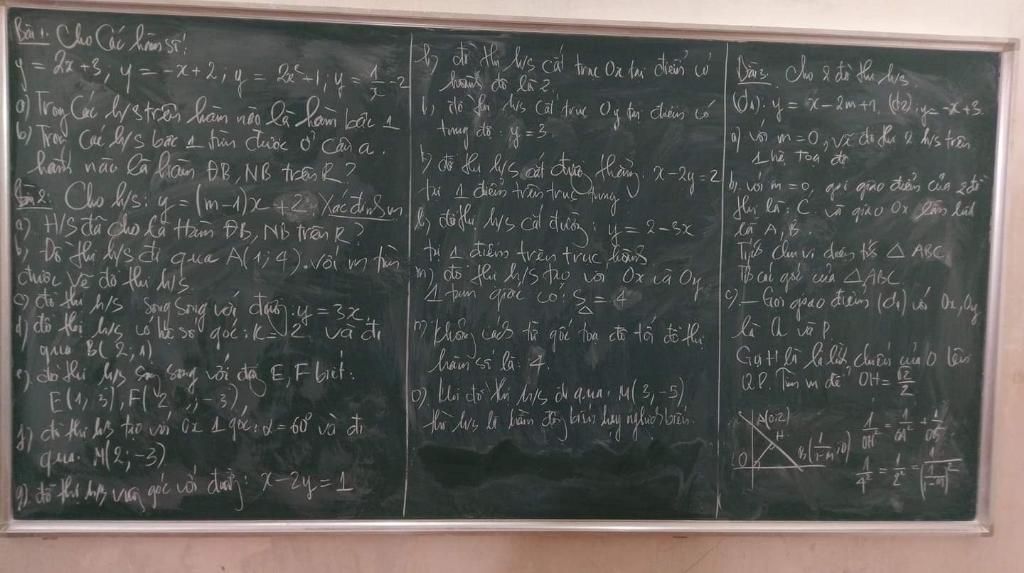 Bài 1: Cho các hàm số:
y = 2x+3, y = -x+2, y = 2x²+1; y = 1/x - 2
a) Trong các h/s trên hàm nào là hàm bậc 1
b) Trong các h/s bậc 1 tìm được ở câu a.
hàm nào là hàm ĐB, NB trên R?
Bài 2: Cho h/s: y = (m-1)x + 2. Xác định m
a) H/S đã cho là Hàm ĐB, NB trên R?
b) Đồ thị h/s đi qua A(1;4). Với m tìm
được vẽ đồ thị h/s
c) đồ thị h/s song song với đường: y = 3x
d) đồ thị h/s có hệ số góc: K = -2 và đi
qua B(2;1)
e) đồ thị h/s song song với đg E, F biết:
E(1;3), F(2;-3)
f) đồ thị h/s tạo với Ox 1 góc: α = 60° và đi
qua: M(2;-3)
g) đồ thị h/s vuông góc với đường: x - 2y = 1
h) đồ thị h/s cắt trục Ox tại điểm có
hoành độ là 2
i) đồ thị h/s cắt trục Oy tại điểm có
tung độ: y = 3.
k) đồ thị h/s cắt đường thẳng: x - 2y = 2
tại 1 điểm trên trục tung
l) đồ thị h/s cắt đường: y = 2 - 3x
tại 1 điểm trên trục hoành
m) đồ thị h/s tạo với Ox và Oy
1 tam giác có: S△ = 4
n) khoảng cách từ gốc toạ độ tới đồ thị
hàm số là: 4.
o) Khi đồ thị h/s đi qua: M(3,-5)
thì h/s là hàm đồng biến hay nghịch biến.
Bài 3: Cho 2 đồ thị h/s
(d1): y = x - 2m+1, (d2): y = -x+3
a) với m = 0, vẽ đồ thị 2 h/s trên
1 hệ toạ độ
b. với m = 0, gọi giao điểm của 2 đồ
thị là: C và giao Ox lần lượt
là A, B.
Tính chu vi diện tích △ABC
Tìm các góc của △ABC
c) - Gọi giao điểm (d1) với Ox, Oy
là Q và P
Gọi H là h/c chiếu của O lên
QP. Tìm m để OH = √2/2
A(0;2)
H
O
B(1/1-m;0)
1/OH = 1/OA + 1/OB
1/4² = 1/2² = 1/(1/1-m)²